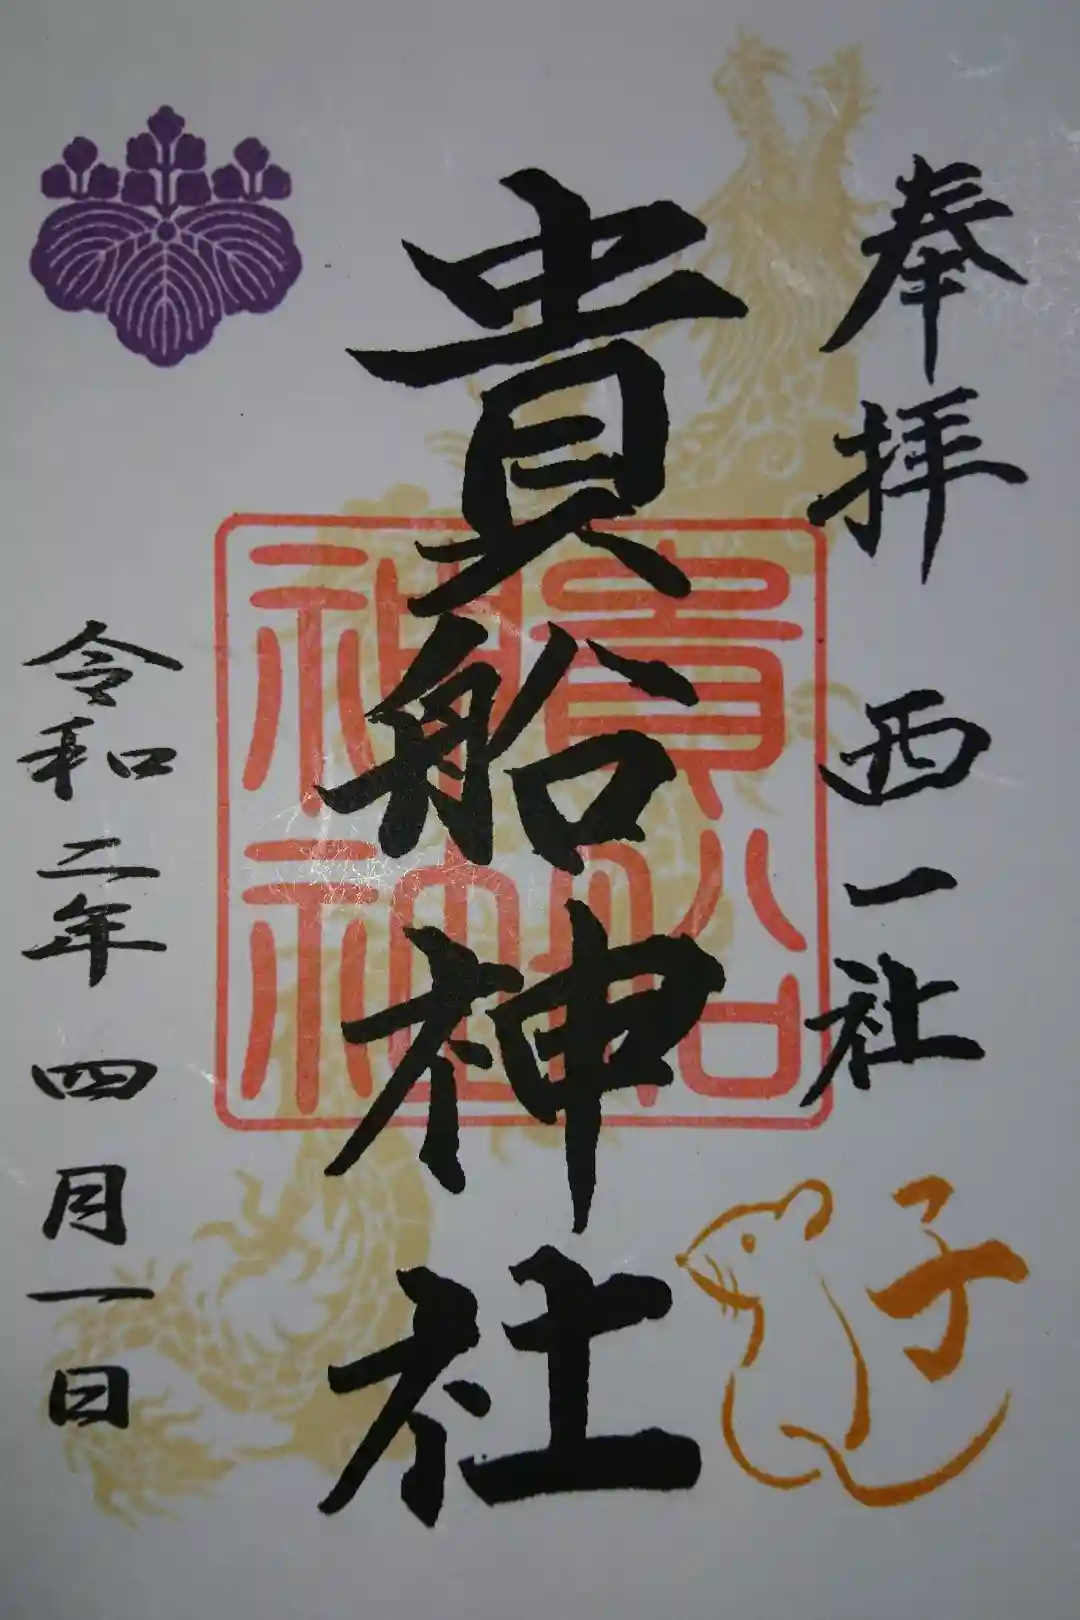 奉拝 西一社
子
貴船神社
貴船
神社
令和二年 四月一日